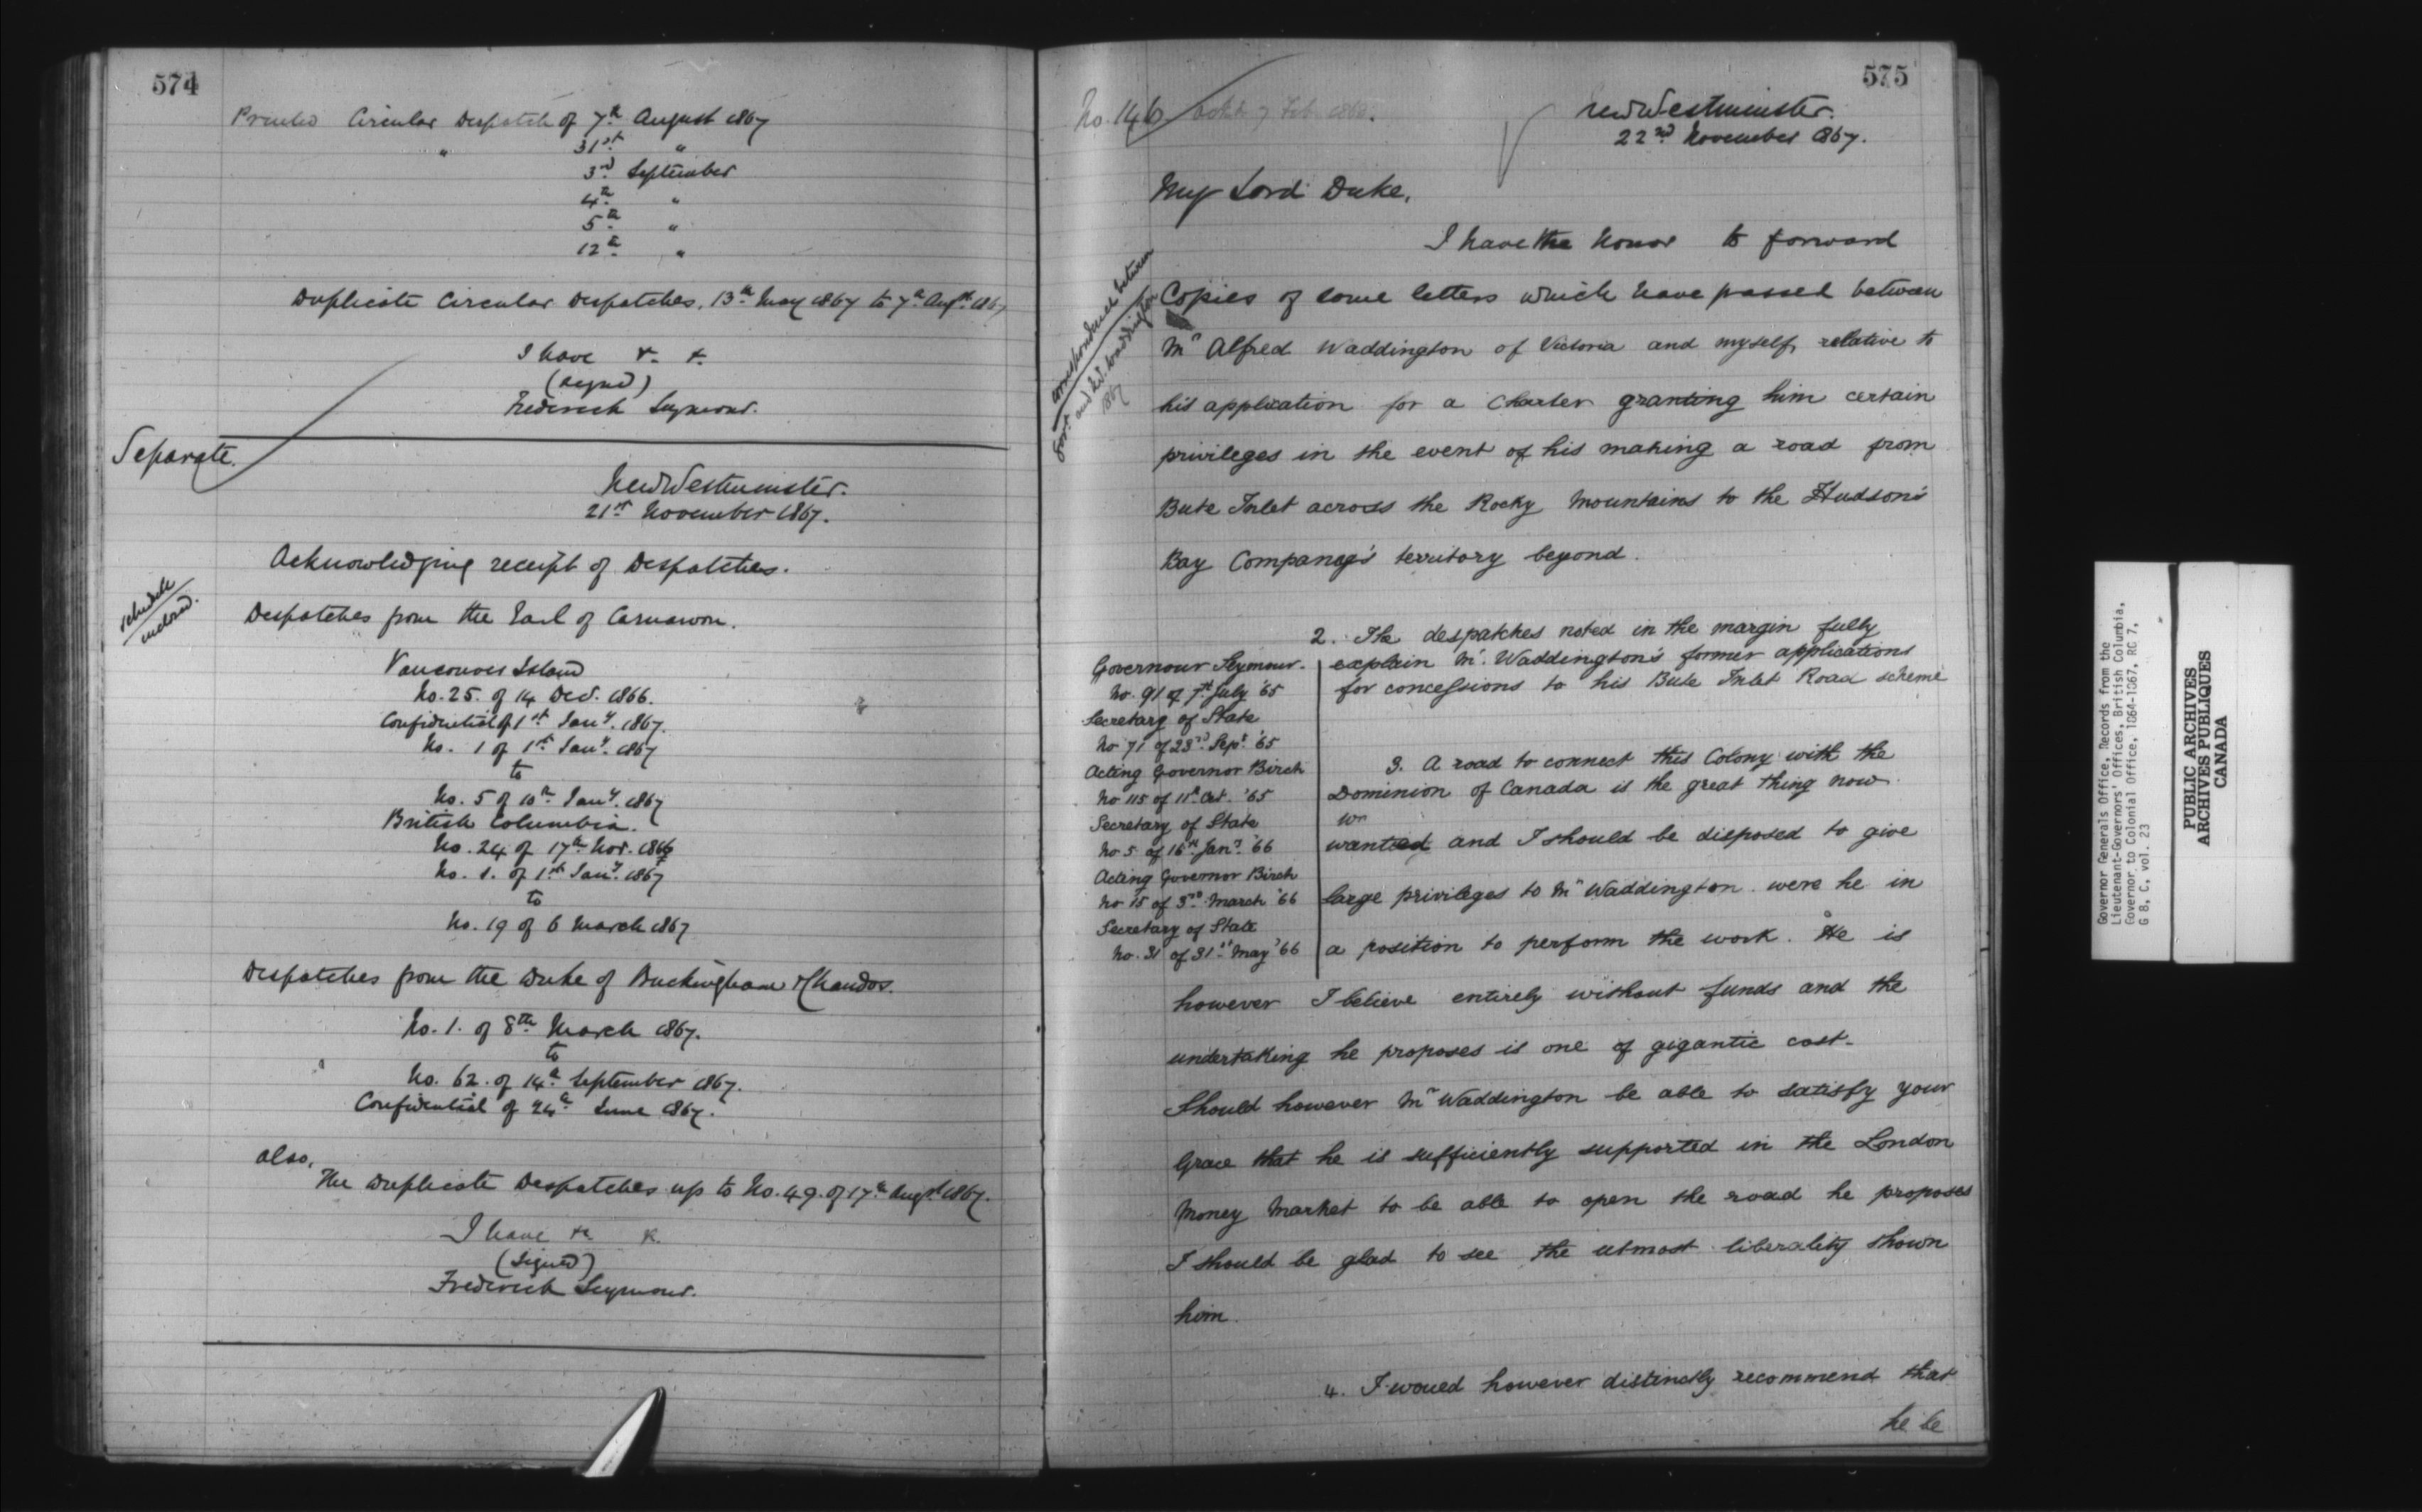 574
Printed Circular Despatch of 7th August 1867
" 31st "
3rd September
4th "
5th "
12th "
Duplicate Circular Despatches, 13th May 1867 to 7th Augst 1867
I have &. &.
(signed)
Frederick Seymour.
Separate.
New Westminster.
21st November 1867.
Acknowledging receipt of Despatches.
Schedule
inclosed.
Despatches from the Earl of Carnarvon.
Vancouver Island
No. 25. of 14 Decr. 1866.
Confidential of 1st Jany. 1867.
No. 1 of 1st Jany. 1867
to
No. 5 of 10th Jany. 1867
British Columbia.
No. 24 of 17th Nov. 1866
No. 1. of 1st Jany. 1867
to
No. 19 of 6 March 1867
Despatches from the Duke of Buckingham & Chandos.
No. 1. of 8th March 1867.
to
No. 62. of 14th September 1867.
Confidential of 24th June 1867.
also,
The Duplicate Despatches up to No. 49. of 17th Augst 1867.
I have &. &.
(Signed)
Frederick Seymour.
575
No. 146 7 Feb. 1868.
New Westminster.
22nd November 1867.
My Lord Duke,
I have the honor to forward
Correspondence between
Govr. and Waddington
1867
Copies of some letters which have passed between
Mr Alfred Waddington of Victoria and myself, relative to
his application for a Charter granting him certain
privileges in the event of his making a road from
Bute Inlet across the Rocky Mountains to the Hudson's
Bay Company's territory beyond.
2. The despatches noted in the margin fully
explain Mr. Waddington's former applications
for concessions to his Bute Inlet Road scheme
Governour Seymour.
No. 91 of 7th July '65
Secretary of State
No 71 of 23rd Sept '65
Acting Governor Birch
No 115 of 11th Oct. '65
Secretary of State
No 5 of 16th Jany '66
Acting Governor Birch
No 15 of 3rd March '66
Secretary of State
No. 31 of 31st May '66
3. A road to connect this Colony with the
Dominion of Canada is the great thing now
wanted and I should be disposed to give
large privileges to Mr Waddington were he in
a position to perform the work. He is
however I believe entirely without funds and the
undertaking he proposes is one of gigantic cost.
Should however Mr Waddington be able to satisfy your
Grace that he is sufficiently supported in the London
Money Market to be able to open the road he proposes
I should be glad to see the utmost liberality shown
him.
4. I would however distinctly recommend that
he be
Governor Generals Office, Records from the
Lieutenant-Governors' Offices, British Columbia,
Governor to Colonial Office, 1864-1867, RC 7,
G 8, C, vol. 23
PUBLIC ARCHIVES
ARCHIVES PUBLIQUES
CANADA